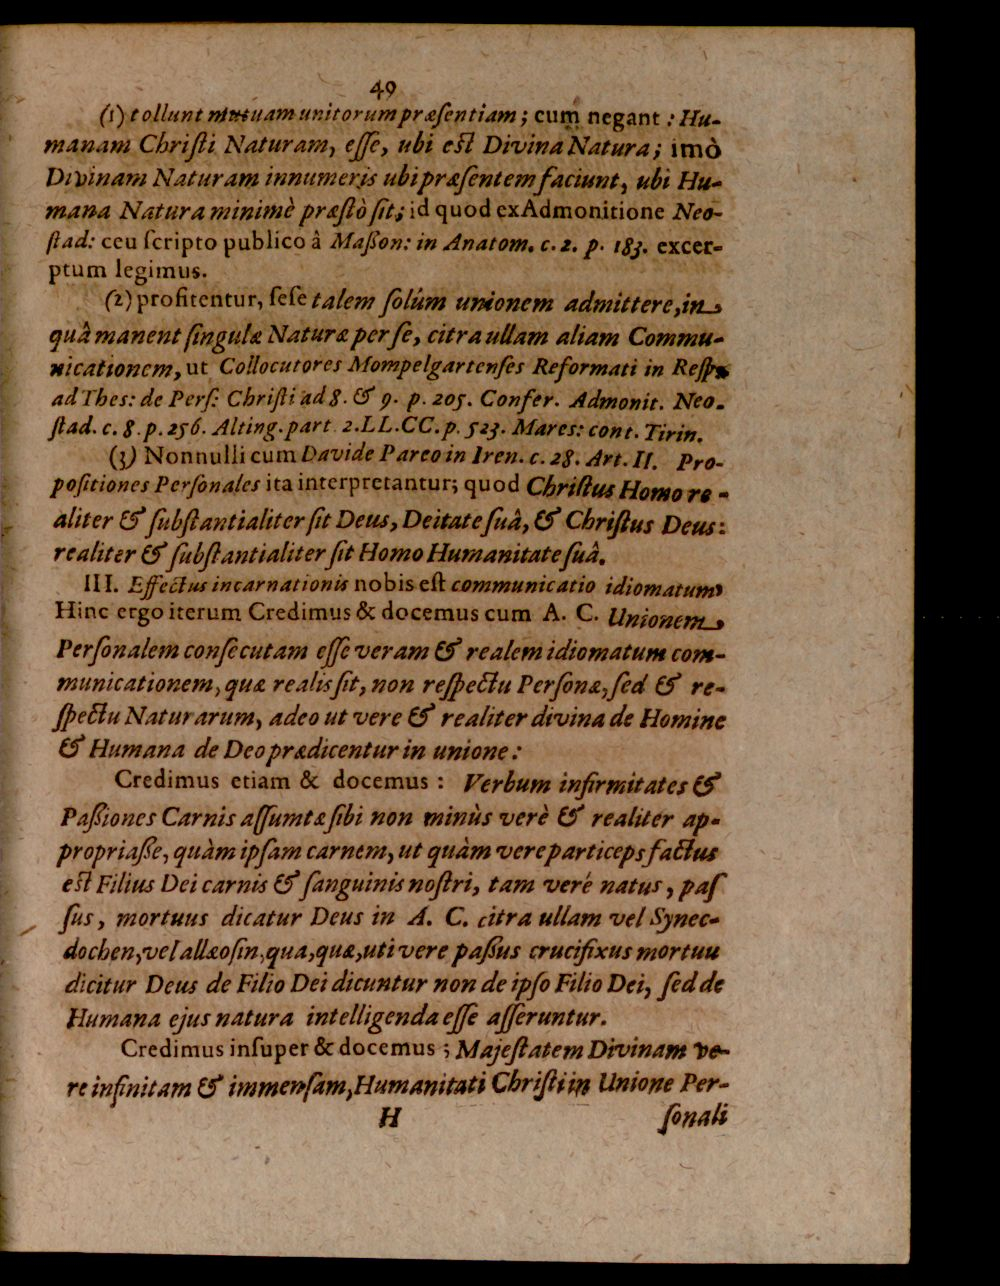 49
(1) tollunt mutuam unitorum præſentiam; cum negant: Hu-
manam Chriſti Naturam, eſſe, ubi eſt Divina Natura; imò
Divinam Naturam innumeris ubi præſentem faciunt, ubi Hu-
mana Natura minimè præſtò ſit; id quod exAdmonitione Neo-
ſtad: ceu ſcripto publico â Maſſon: in Anatom. c. 2. p. 183. excer-
ptum legimus.
(2) profitentur, ſeſe talem ſolùm unionem admittere, in
quâ manent ſingulæ Naturæ per ſe, citra ullam aliam Commu-
nicationem, ut Collocutores Mompelgartenſes Reformati in Reſp.
ad Theſ: de Perſ: Chriſti ad 8. & 9. p. 205. Confer. Admonit. Neo.
ſtad. c. 8. p. 256. Alting. part 2. LL. CC. p. 523. Mares: cont. Tirin.
(3) Nonnulli cum Davide Pareo in Iren. c. 28. Art. II. Pro-
poſitiones Perſonales ita interpretantur; quod Chriſtus Homo re-
aliter & ſubſtantialiter ſit Deus, Deitate ſuâ, & Chriſtus Deus:
realiter & ſubſtantialiter ſit Homo Humanitate ſuâ.
III. Effectus incarnationis nobis eſt communicatio idiomatum
Hinc ergo iterum Credimus & docemus cum A. C. Unionem
Perſonalem conſecutam eſſe veram & realem idiomatum com-
municationem, quæ realis ſit, non reſpectu Perſonæ, ſed & re-
ſpectu Naturarum, adeo ut vere & realiter divina de Homine
& Humana de Deo prædicentur in unione:
Credimus etiam & docemus: Verbum infirmitates &
Paſſiones Carnis aſſumtæ ſibi non minùs verè & realiter ap-
propriaſſe, quàm ipſam carnem, ut quàm vere particeps factus
eſt Filius Dei carnis & ſanguinis noſtri, tam veré natus, paſ
ſus, mortuus dicatur Deus in A. C. citra ullam vel Synec-
dochen, vel allæoſin, qua, quæ, uti vere paſſus crucifixus mortuu
dicitur Deus de Filio Dei dicuntur non de ipſo Filio Dei, ſed de
Humana ejus natura intelligenda eſſe aſſeruntur.
Credimus inſuper & docemus; Majeſtatem Divinam ve-
re infinitam & immenſam, Humanitati Chriſti in Unione Per-
H ſonali